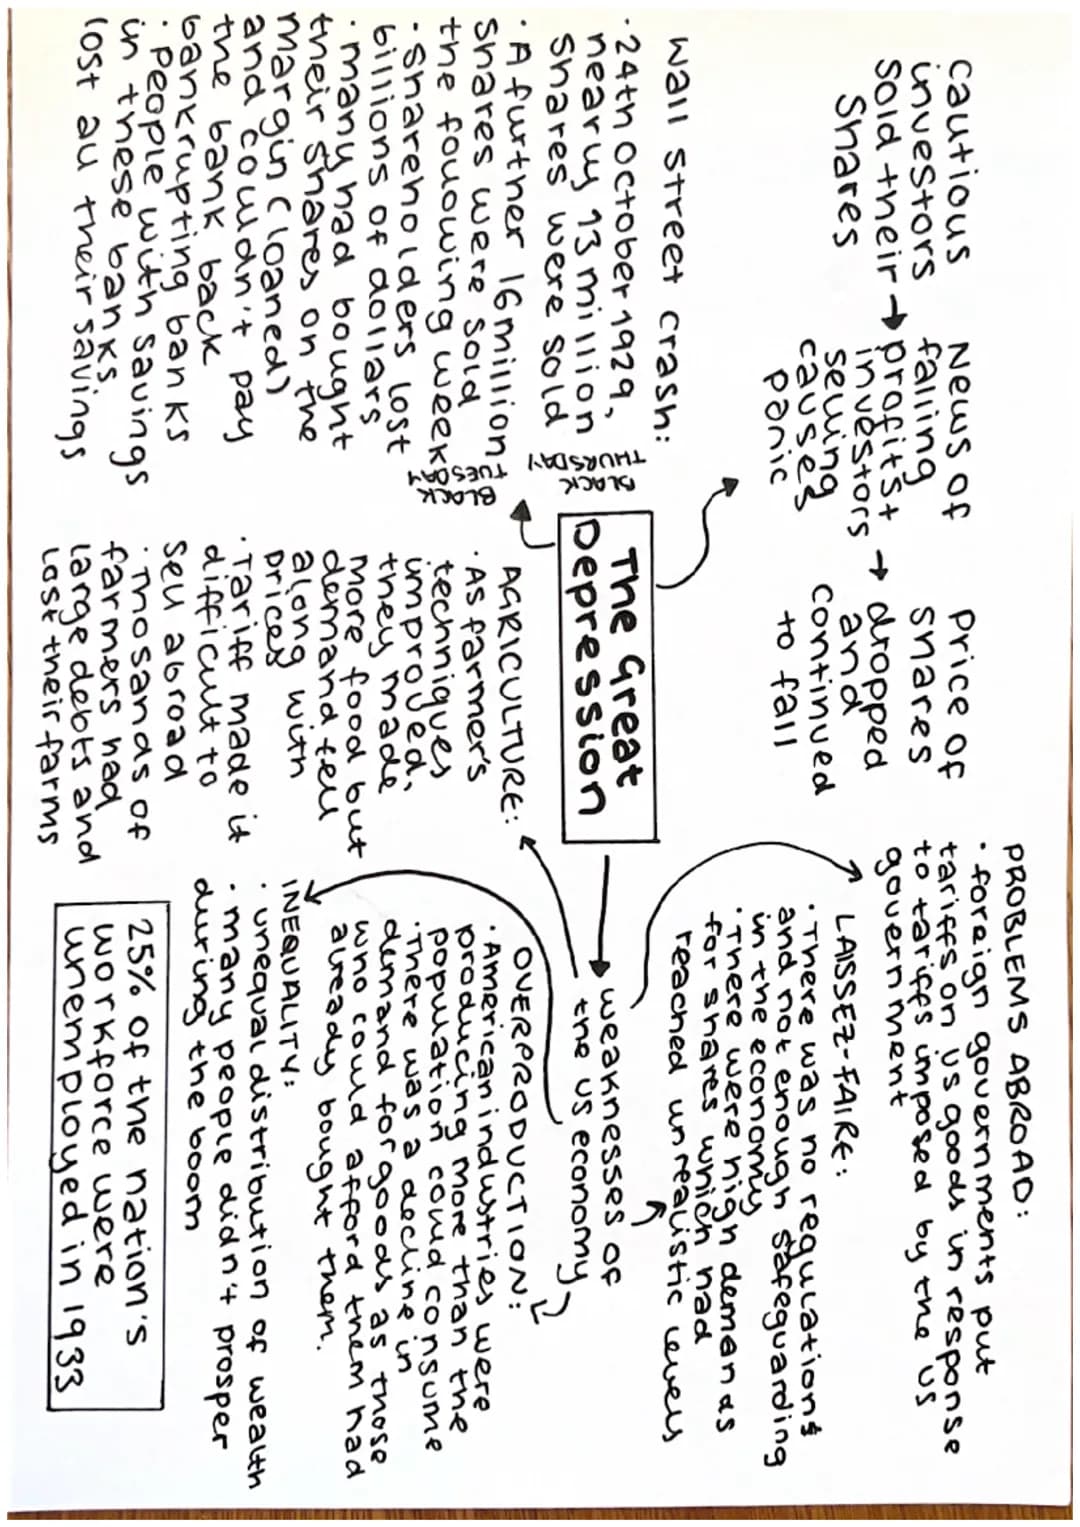 Cautious
investors
sold their →
shares
News of
falling
profits +
investors →
selling
causes
panic
Price of
shares
dropped
and
continued
to fall
PROBLEMS ABROAD:
· foreign governments put
tariffs on US goods in response
to tariffs imposed by the US
government
Wall street crash:
· 24th october 1929,
nearly 13 million
shares were sold
BLACK
THURSDAY
· A further 16 million
shares were sold
the following week
BLACK
TUESDAY
· shareholders lost
billions of dollars
· many had bought
their shares on the
margin (loaned)
and couldn't pay
the bank back
bankrupting banks
· people with savings
in these banks
lost all their savings
The Great
Depression
weaknesses of
the US economy
LASSEZ-FAIRE:
· There was no regulations
and not enough safeguarding
in the economy
· There were high demands
for shares which had
reached unrealistic levels
AGRICULTURE:
· As farmer's
techniques
improved,
they made
more food but
demand fell
along with
prices
· Tariff made it
difficult to
sell abroad
· thosands of
farmers had
large debts and
lost their farms
OVERPRODUCTION:
· American industries were
producing more than the
population could consume
· There was a decline in
demand for goods as those
who could afford them had
already bought them.
INEQUALITY:
· unequal distribution of wealth
· many people didn't prosper
during the boom
25% of the nation's
workforce were
unemployed in 1933